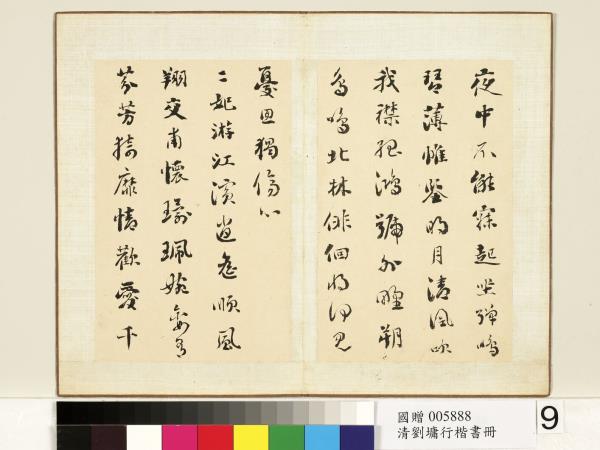 夜中不能寐起坐彈鳴
琴薄帷鑒明月清風吹
我襟孤鴻號外野朔
鳥鳴北林俳佪將何見
憂思獨傷心
二妃游江濱逍遙順風
翔交甫懷環珮婉孌有
芬芳猗靡情歡愛千
國贈 005888
清劉墉行楷書冊
9